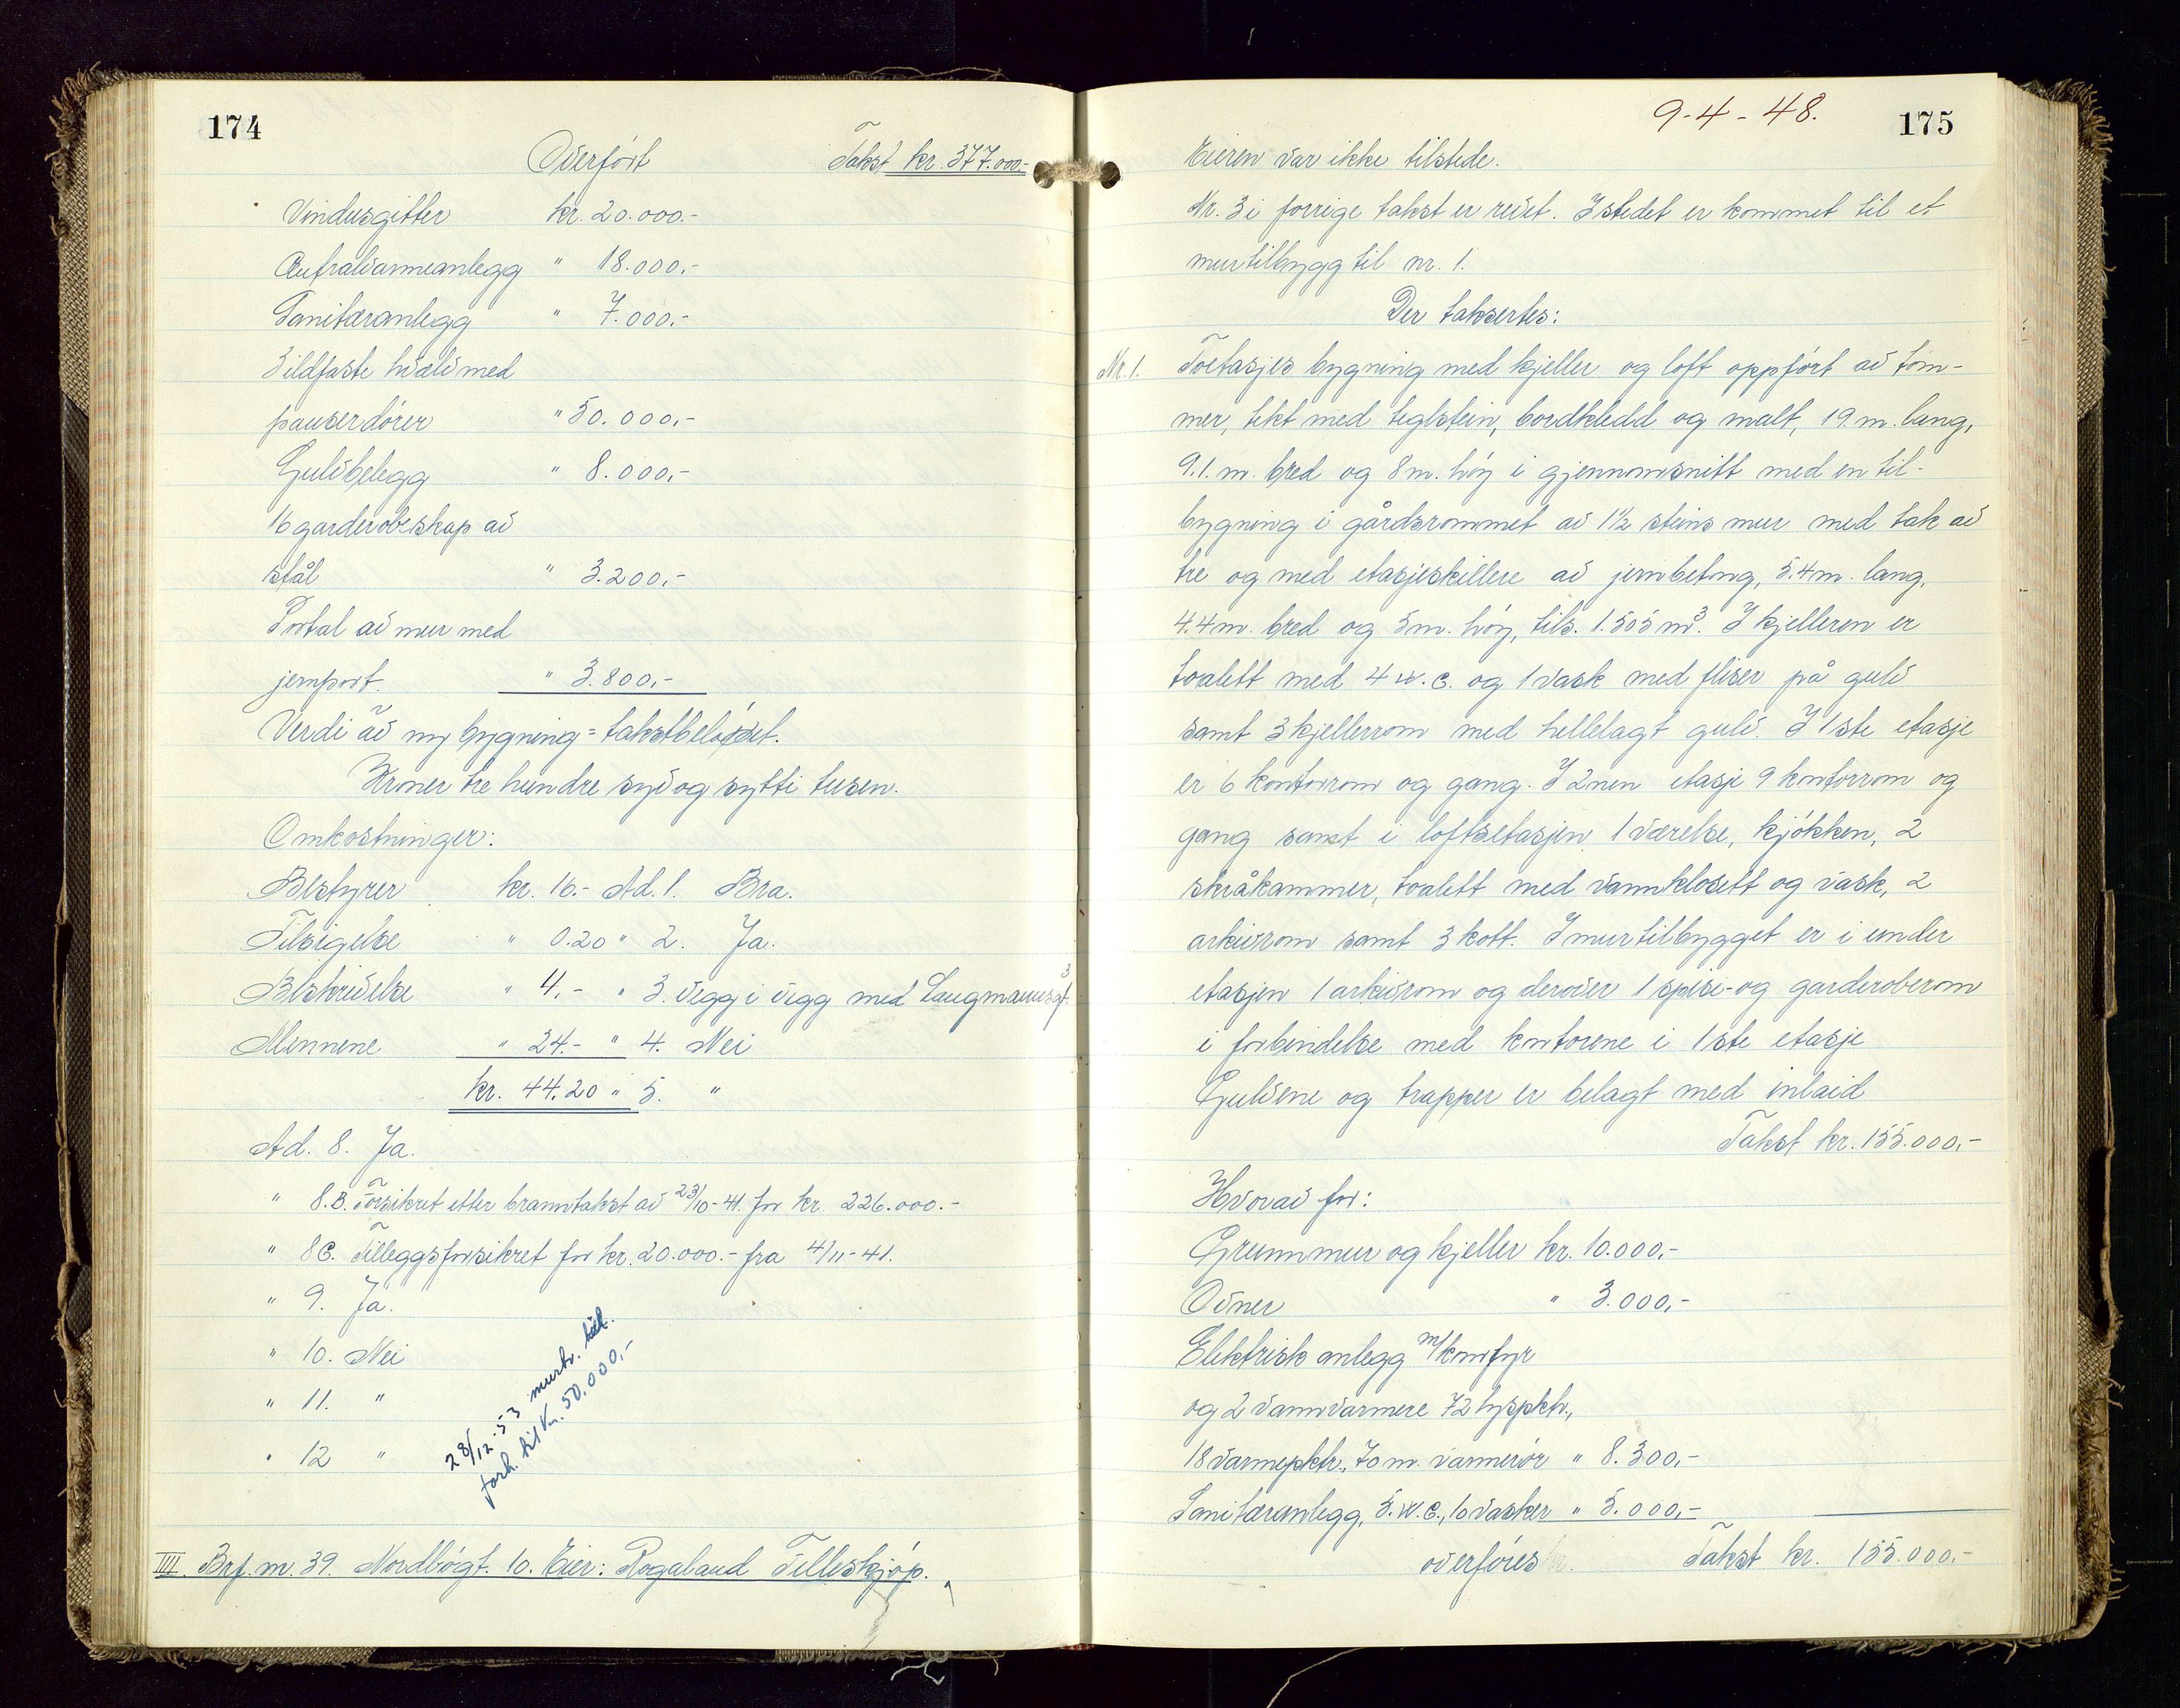 174
Overført Takst kr. 377.000.-
Vindusgitter kr. 20.000.-
Centralvarmeanlegg " 18.000.-
Sanitæranlegg " 7.000.-
3 ildfaste hvælv med
panserdører " 50.000,-
Gulvbelegg " 8.000,-
16 garderobeskap av
stål " 3.200,-
Portal av mur med
jernport. " 3.800,-
Verdi av ny bygning = takstbeløpet.
Kroner tre hundre syv og sytti tusen.
Omkostninger:
Bestyrer kr. 16.- Ad. 1. Bra.
Tilsigelse " 0.20 " 2. Ja.
Beskrivelse " 4,- " 3. Vegg i vegg med Laugmannsgt. 3
Mennene " 24.- " 4. Nei
kr. 44.20 " 5. "
Ad. 8. Ja.
" 8.B. Forsikret etter branntakst av 23/10-41. for kr. 226.000.-
" 8C. Tilleggsforsikret for kr. 20.000.- fra 4/11-41.
" 9. Ja.
" 10. Nei
" 11. "
" 12 "
28/12-53 murtv. till.
forh. til kr. 50.000,-
IIII. Brf. nr. 39. Nordbøgt. 10. Eier: Rogaland Felleskjøp.
9-4-48.
175
Eieren var ikke tilstede.
Nr. 3 i forrige takst er revet. I stedet er kommet til et
murtilbygg til nr. 1.
Der taksertes:
Nr. 1. Toetasjes bygning med kjeller og loft oppført av tøm-
mer, tekt med teglstein, bordkledd og malt, 19. m. lang,
9.1. m. bred og 8 m. høy i gjennomsnitt med en til-
bygning i gårdsrommet av 1½ steins mur med tak av
tre og med etasjeskillere av jernbetong, 5.4 m. lang,
4.4 m. bred og 5 m. høy, tils. 1.505 m³. I kjelleren er
toalett med 4 w.c. og 1 vask med fliser på gulv
samt 3 kjellerrom med hellelagt gulv. I 1ste etasje
er 6 kontorrom og gang. I 2nen etasje 9 kontorrom og
gang samt i loftsetasjen 1 værelse, kjøkken, 2
skråkammer, toalett med vannklosett og vask, 2
arkivrom samt 3 kott. I murtilbygget er i under
etasjen 1 arkivrom og derover 1 spise- og garderoberom
i forbindelse med kontorene i 1ste etasje
Gulvene og trapper er belagt med inlaid
Takst kr. 155.000,-
Hvorav for:
Grunnmur og kjeller kr. 10.000,-
Ovner " 3.000,-
Elektrisk anlegg m/komfyr
og 2 vannvarmere 72 lyspktr.,
18 varmepktr., 70 m. varmerør " 8.300,-
Sanitæranlegg, 5. w.c., 10 vasker " 5.000,-
overføres kr. Takst kr. 155.000.-